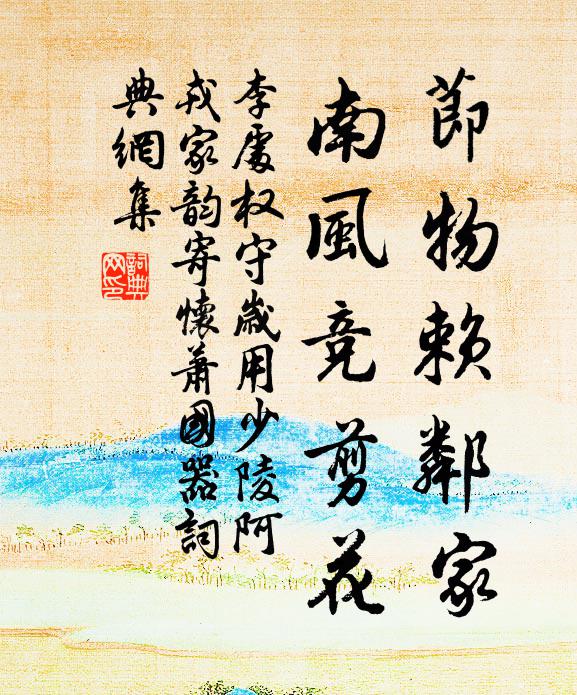 節物賴鄰家
南風竞剪花
李處权守歲用少陵阿
戎家韵寄懷蕭國器詞
典網集
詞典
网印